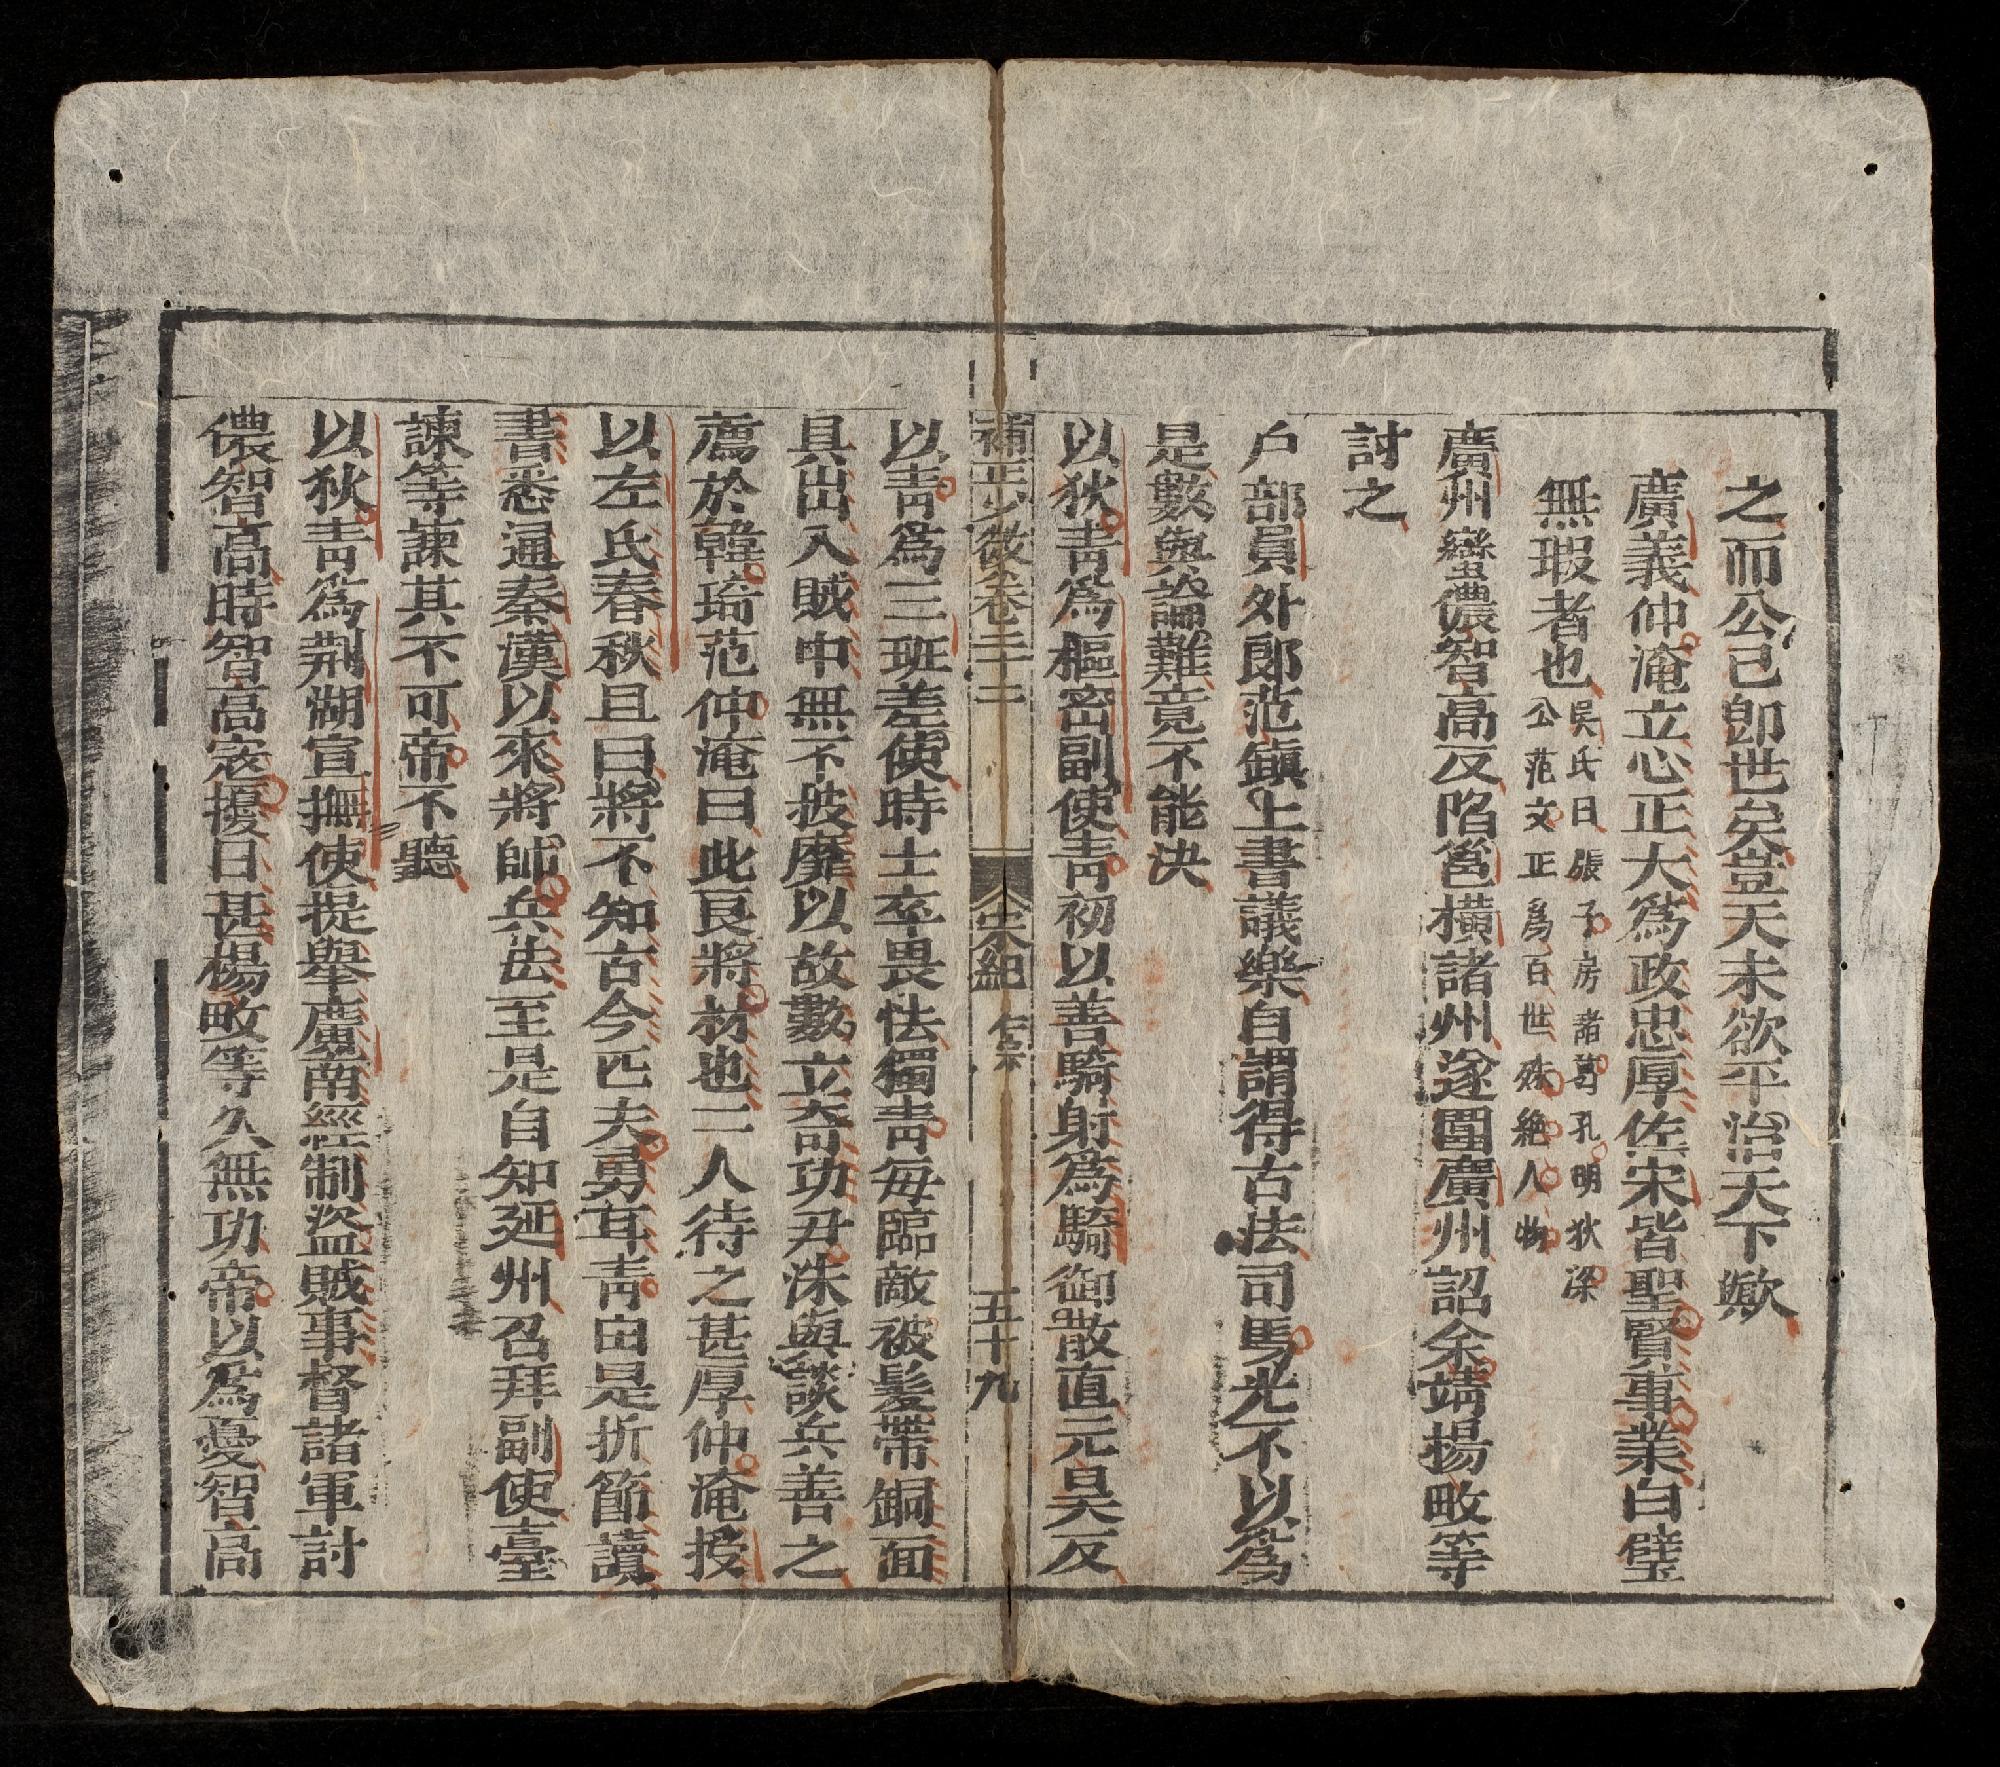 之而公已卽世矣豈天未欲平治天下歟
廣義仲淹立心正大爲政忠厚佐宋皆聖賢事業白璧
無瑕者也吳氏曰張子房諸葛孔明狄梁
公范文正爲百世殊絶人物
廣州蠻儂智高反陷邕橫諸州遂圍廣州詔余靖揚畋等
討之
户部員外郎范鎭上書議樂自謂得古法司馬光不以爲
是數與論難竟不能決
以狄青爲樞密副使青初以善騎射爲騎御散直元昊反
補正少微卷二十二 宋紀 仁宗 五十九
以青爲三班差使時士卒畏怯獨青每臨敵被髮帶銅面
具出入賊中無不披靡以故數立奇功尹洙與談兵善之
薦於韓琦范仲淹曰此良將材也二人待之甚厚仲淹授
以左氏春秋且曰將不知古今匹夫勇耳青由是折節讀
書悉通秦漢以來將帥兵法至是自知延州召拜副使臺
諫等諫其不可帝不聽
以狄青爲荆湖宣撫使提舉廣南經制盗賊事督諸軍討
儂智高時智高寇擾日甚楊畋等久無功帝以爲憂智高